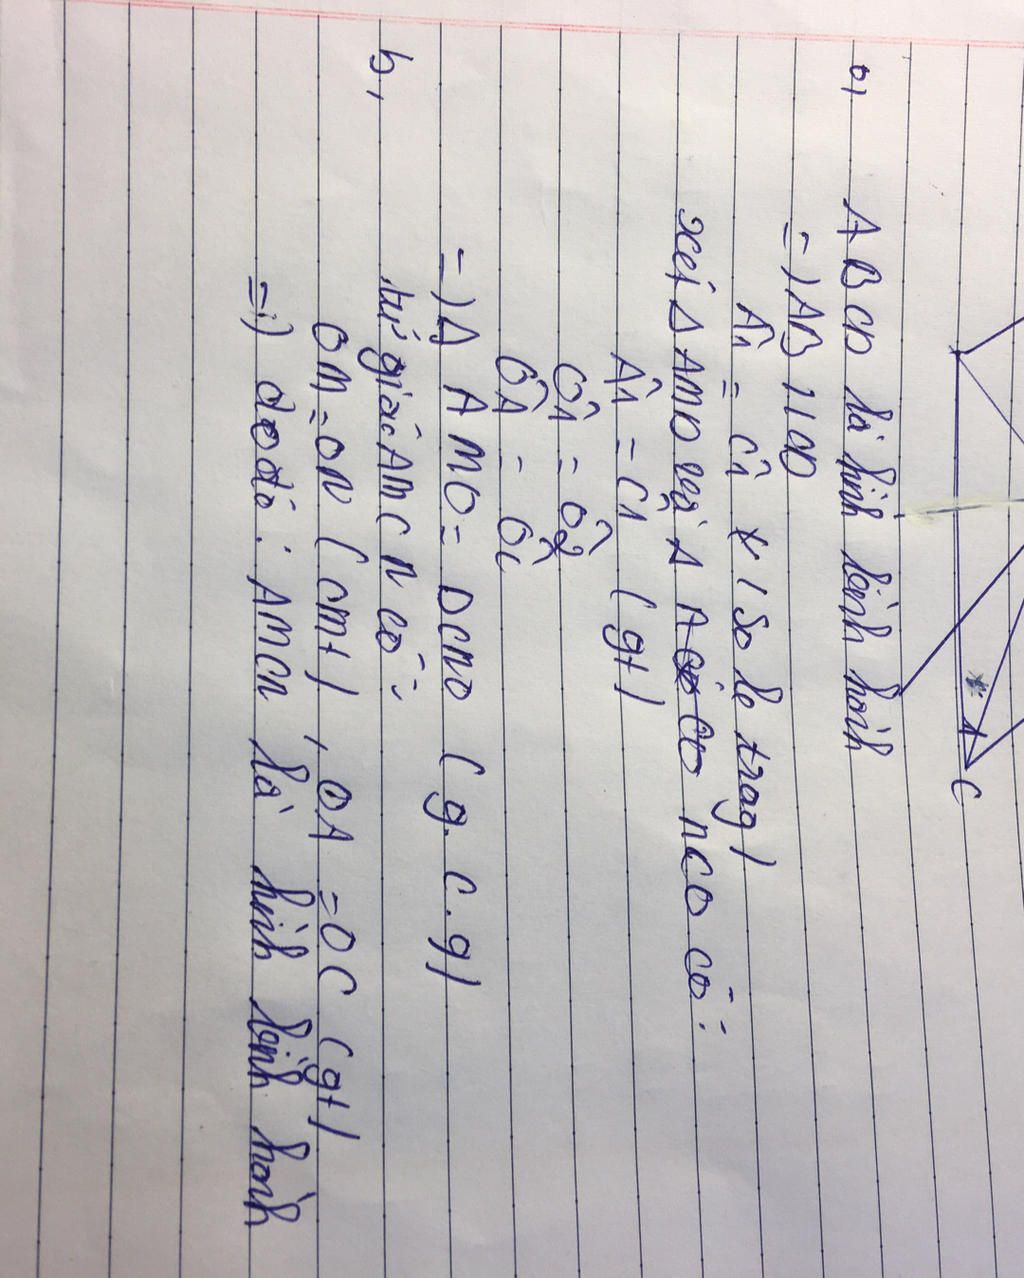 C
a, ABCD là hình bình hành
=) AB // CD
Â1 = Ĉ1 (so le trog)
xét Δ AMO và Δ NCO có:
Â1 = Ĉ1 (gt)
Ô1 = Ô2
ÔA = ÔC
=) Δ AMO = DCNO (g.c.g)
b, tứ giác AMCN có:
OM = ON (cmt), OA = OC (gt)
=) do đó: AMCN là hình bình hành